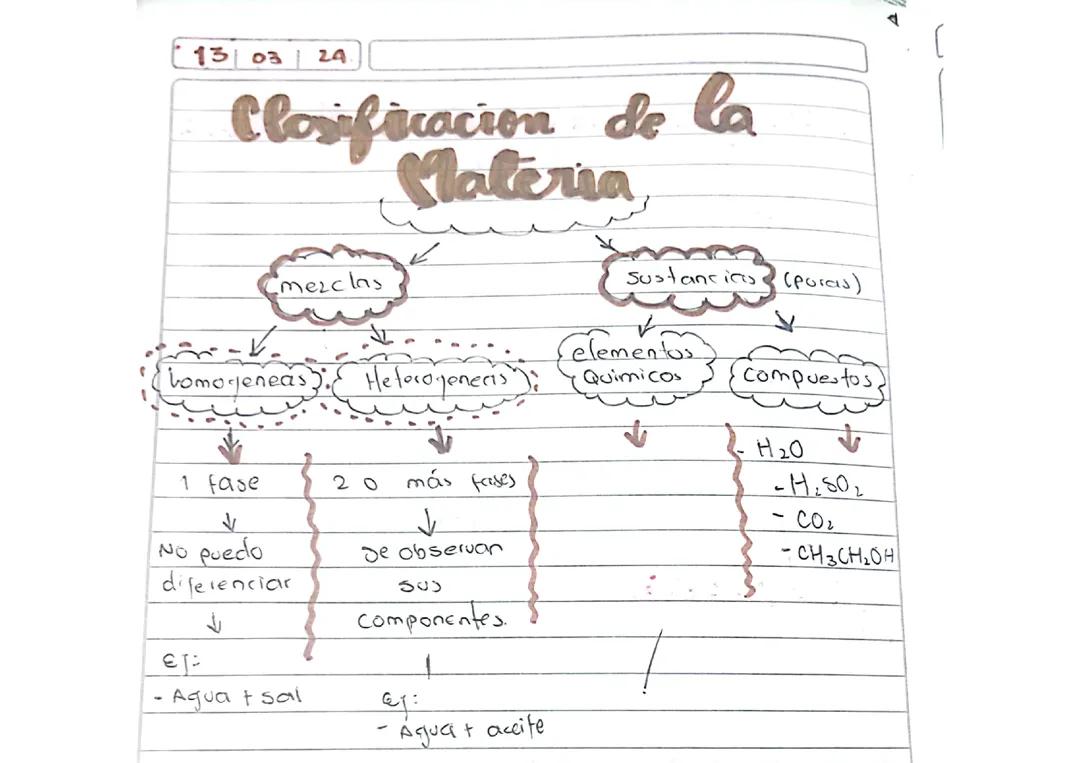 13 03 24
Clasificacion de la
Materia
mezclas
sustancias (puras)
homogeneas
Heterogeneas
elementos
Quimicos
compuestos
1 fase
No puedo
diferenciar
Ej:
- Agua + sal
2 o más fases
se observan
sus
componentes.
Ej:
- Agua + aceite
- H₂O
- H₂SO₂
- CO₂
- CH₃CH₂OH